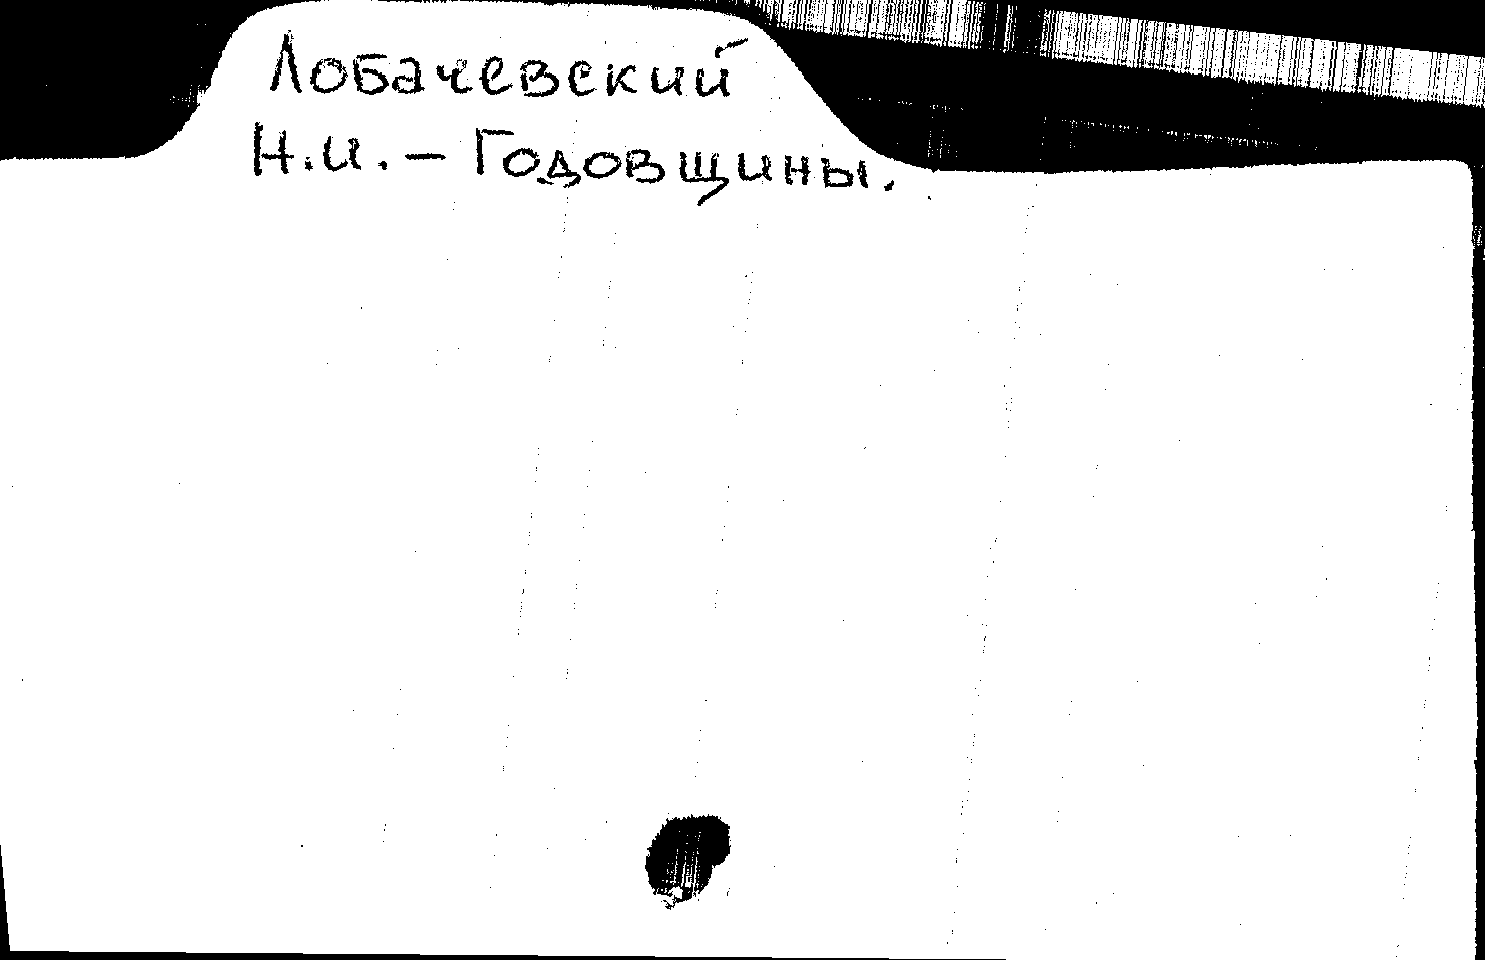 Лобачевский
Н.И. – Годовщины.